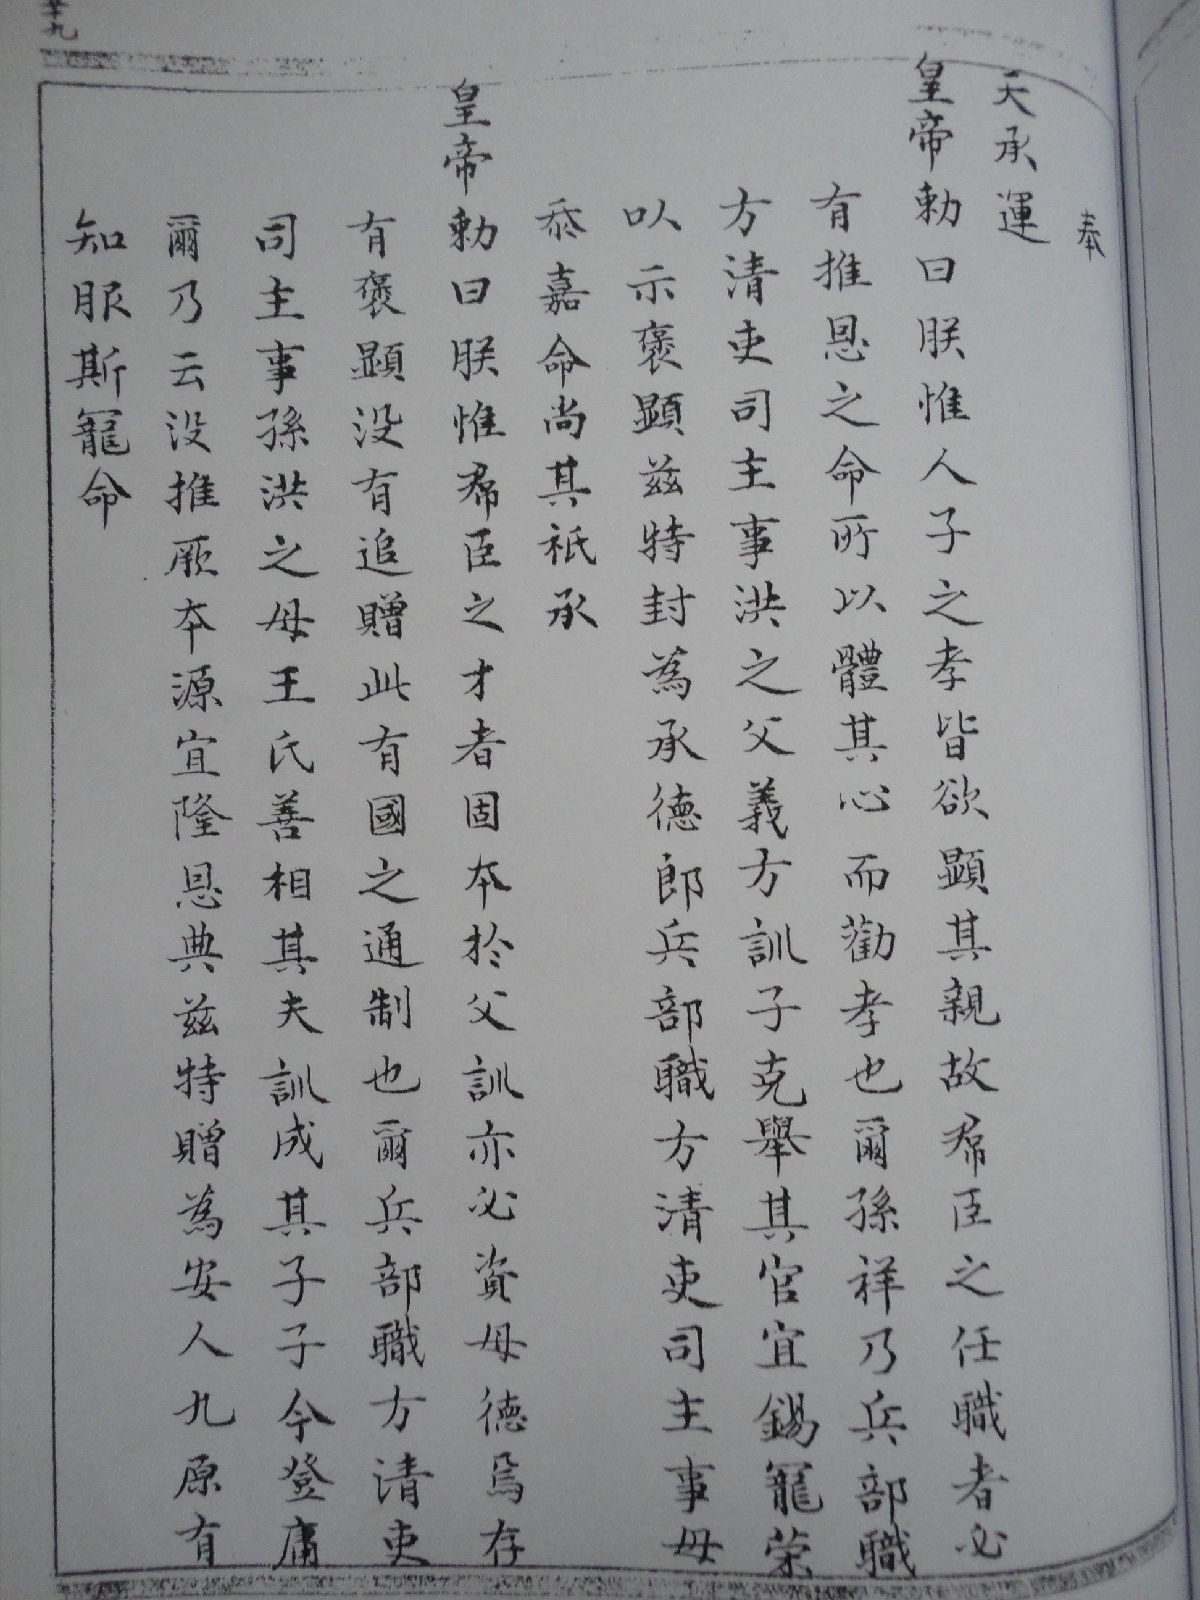 奉
天承運
皇帝勅曰朕惟人子之孝皆欲顯其親故羣臣之任職者必
有推恩之命所以體其心而勸孝也爾孫祥乃兵部職
方清吏司主事洪之父義方訓子克舉其官宜錫寵荣
以示褒顯兹特封為承德郎兵部職方清吏司主事毋
忝嘉命尚其祇承
皇帝勅曰朕惟羣臣之才者固本於父訓亦必資母德焉存
有褒顯没有追贈此有國之通制也爾兵部職方清吏
司主事孫洪之母王氏善相其夫訓成其子子今登庸
爾乃云没推厥本源宜隆恩典兹特贈為安人九原有
知服斯寵命